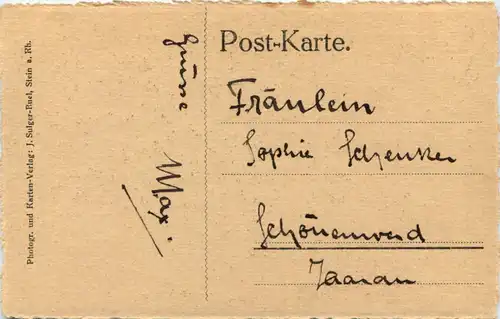 Post-Karte.
Fräulein
Sophie Schenker
Schönenwerd
Aarau
Grüsse
Max.
Photogr. und Karten-Verlag: J. Sulger-Buel, Stein a. Rh.